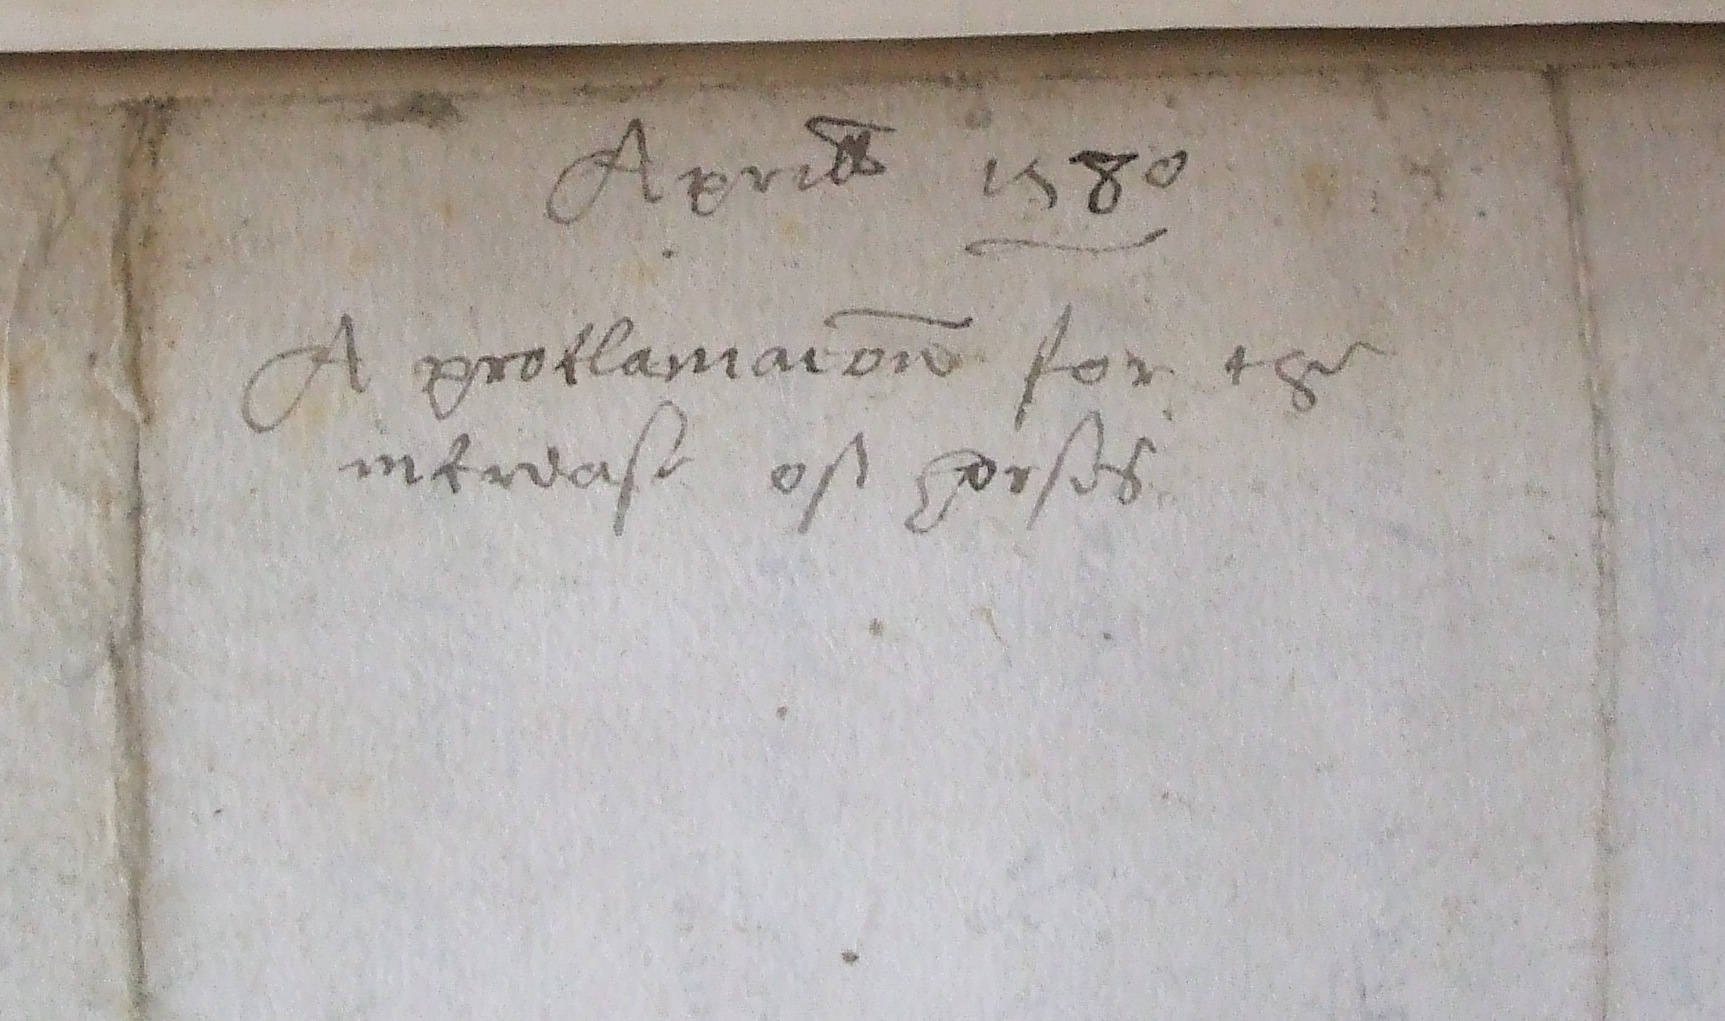 Aprill 1580
A proclamacion for the
increase of horses